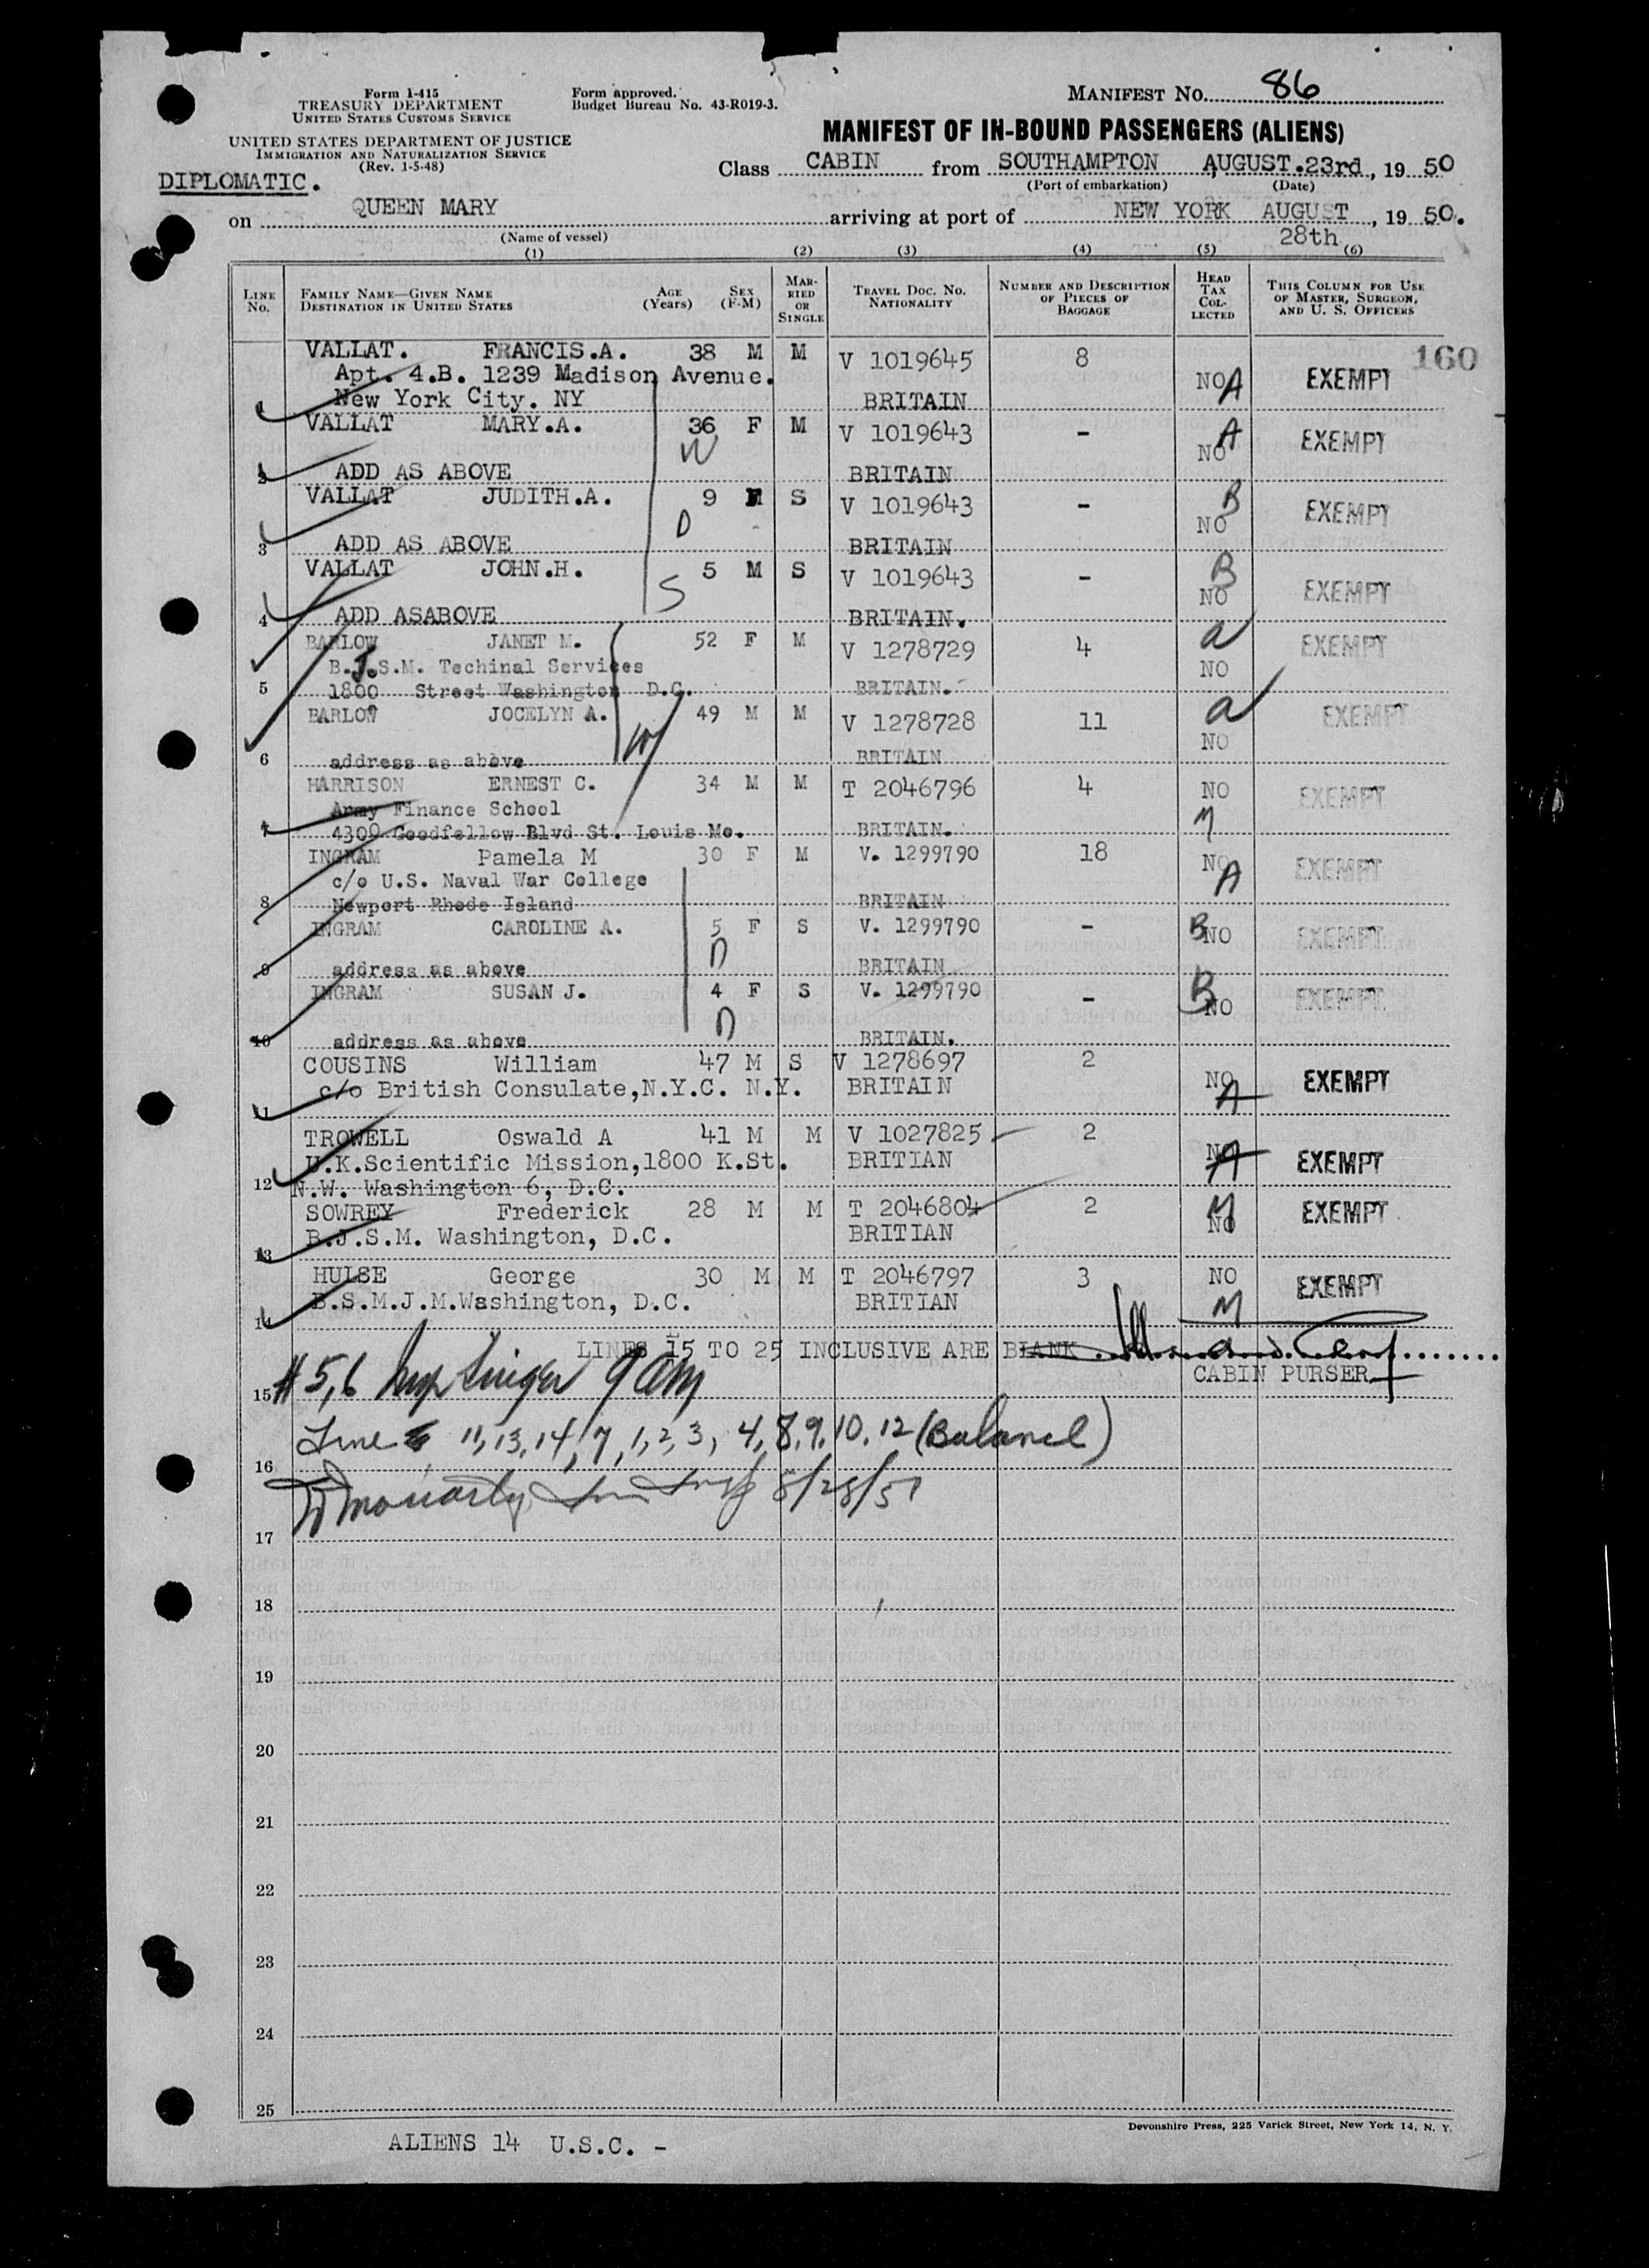 Form I-415
TREASURY DEPARTMENT
UNITED STATES CUSTOMS SERVICE
UNITED STATES DEPARTMENT OF JUSTICE
IMMIGRATION AND NATURALIZATION SERVICE
(Rev. 1-5-48)
DIPLOMATIC.
Form approved.
Budget Bureau No. 43-R019-3.
MANIFEST NO. 86
MANIFEST OF IN-BOUND PASSENGERS (ALIENS)
Class CABIN from SOUTHAMPTON AUGUST.23rd, 19 50
(Port of embarkation) (Date)
on QUEEN MARY arriving at port of NEW YORK AUGUST, 19 50.
28th
(Name of vessel)
(1) (2) (3) (4) (5) (6)
LINE No. FAMILY NAME—GIVEN NAME DESTINATION IN UNITED STATES AGE (Years) SEX (F-M) MARRIED OR SINGLE TRAVEL DOC. NO. NATIONALITY NUMBER AND DESCRIPTION OF PIECES OF BAGGAGE HEAD TAX COLLECTED THIS COLUMN FOR USE OF MASTER, SURGEON, AND U. S. OFFICERS
160
VALLAT. FRANCIS.A. 38 M M V 1019645 8
Apt. 4.B. 1239 Madison Avenue. NO A EXEMPT
1 New York City. NY BRITAIN
VALLAT MARY.A. 36 F M V 1019643 - A EXEMPT
W NO
2 ADD AS ABOVE BRITAIN
VALLAT JUDITH.A. 9 S V 1019643 - B EXEMPT
D NO
3 ADD AS ABOVE BRITAIN
VALLAT JOHN.H. 5 M S V 1019643 - B EXEMPT
S NO
4 ADD ASABOVE BRITAIN.
BARLOW JANET M. 52 F M V 1278729 4 a EXEMPT
B.J.S.M. Techinal Services NO
5 1800 Street Washington D.C. BRITAIN.
BARLOW JOCELYN A. 49 M M V 1278728 11 a EXEMPT
W NO
6 address as above BRITAIN
HARRISON ERNEST C. 34 M M T 2046796 4 NO EXEMPT
Army Finance School M
7 4309 Goodfellow Blvd St. Louis Mo. BRITAIN.
INGRAM Pamela M 30 F M V. 1299790 18 NO EXEMPT
c/o U.S. Naval War College A
8 Newport Rhode Island BRITAIN
INGRAM CAROLINE A. 5 F S V. 1299790 - B NO EXEMPT
D
9 address as above BRITAIN
INGRAM SUSAN J. 4 F S V. 1299790 - B NO EXEMPT
D
10 address as above BRITAIN.
COUSINS William 47 M S V 1278697 2
c/o British Consulate,N.Y.C. N.Y. BRITAIN NO EXEMPT
11 A
TROWELL Oswald A 41 M M V 1027825 2
U.K.Scientific Mission,1800 K.St. BRITIAN NO A EXEMPT
12 N.W. Washington 6, D.C.
SOWREY Frederick 28 M M T 2046804 2 M NO EXEMPT
B.J.S.M. Washington, D.C. BRITIAN
13
HULSE George 30 M M T 2046797 3 NO EXEMPT
B.S.M.J.M.Washington, D.C. BRITIAN M
14
LINES 15 TO 25 INCLUSIVE ARE BLANK.
CABIN PURSER
15 # 5,6
Line 11, 13, 14, 7, 1, 2, 3, 4, 8, 9, 10, 12 (Balance)
16
Moriarty 8/28/50
17
18
19
20
21
22
23
24
25
Devonshire Press, 225 Varick Street, New York 14, N. Y.
ALIENS 14 U.S.C. -